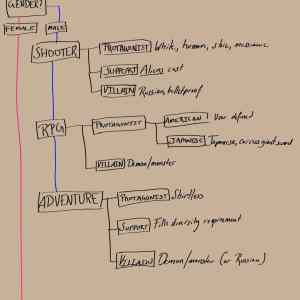 GENDER?
FEMALE
MALE
SHOOTER
PROTAGONIST White, human, stoic, messianic
SUPPORT Aliens cast
VILLAIN Russian, bulletproof
RPG
PROTAGONIST
AMERICAN User defined
JAPANESE Japanese, carries giant sword
VILLAIN Demon/monster
ADVENTURE
PROTAGONIST Shirtless
SUPPORT Fills diversity requirement
VILLAIN Demon/monster (or Russian)